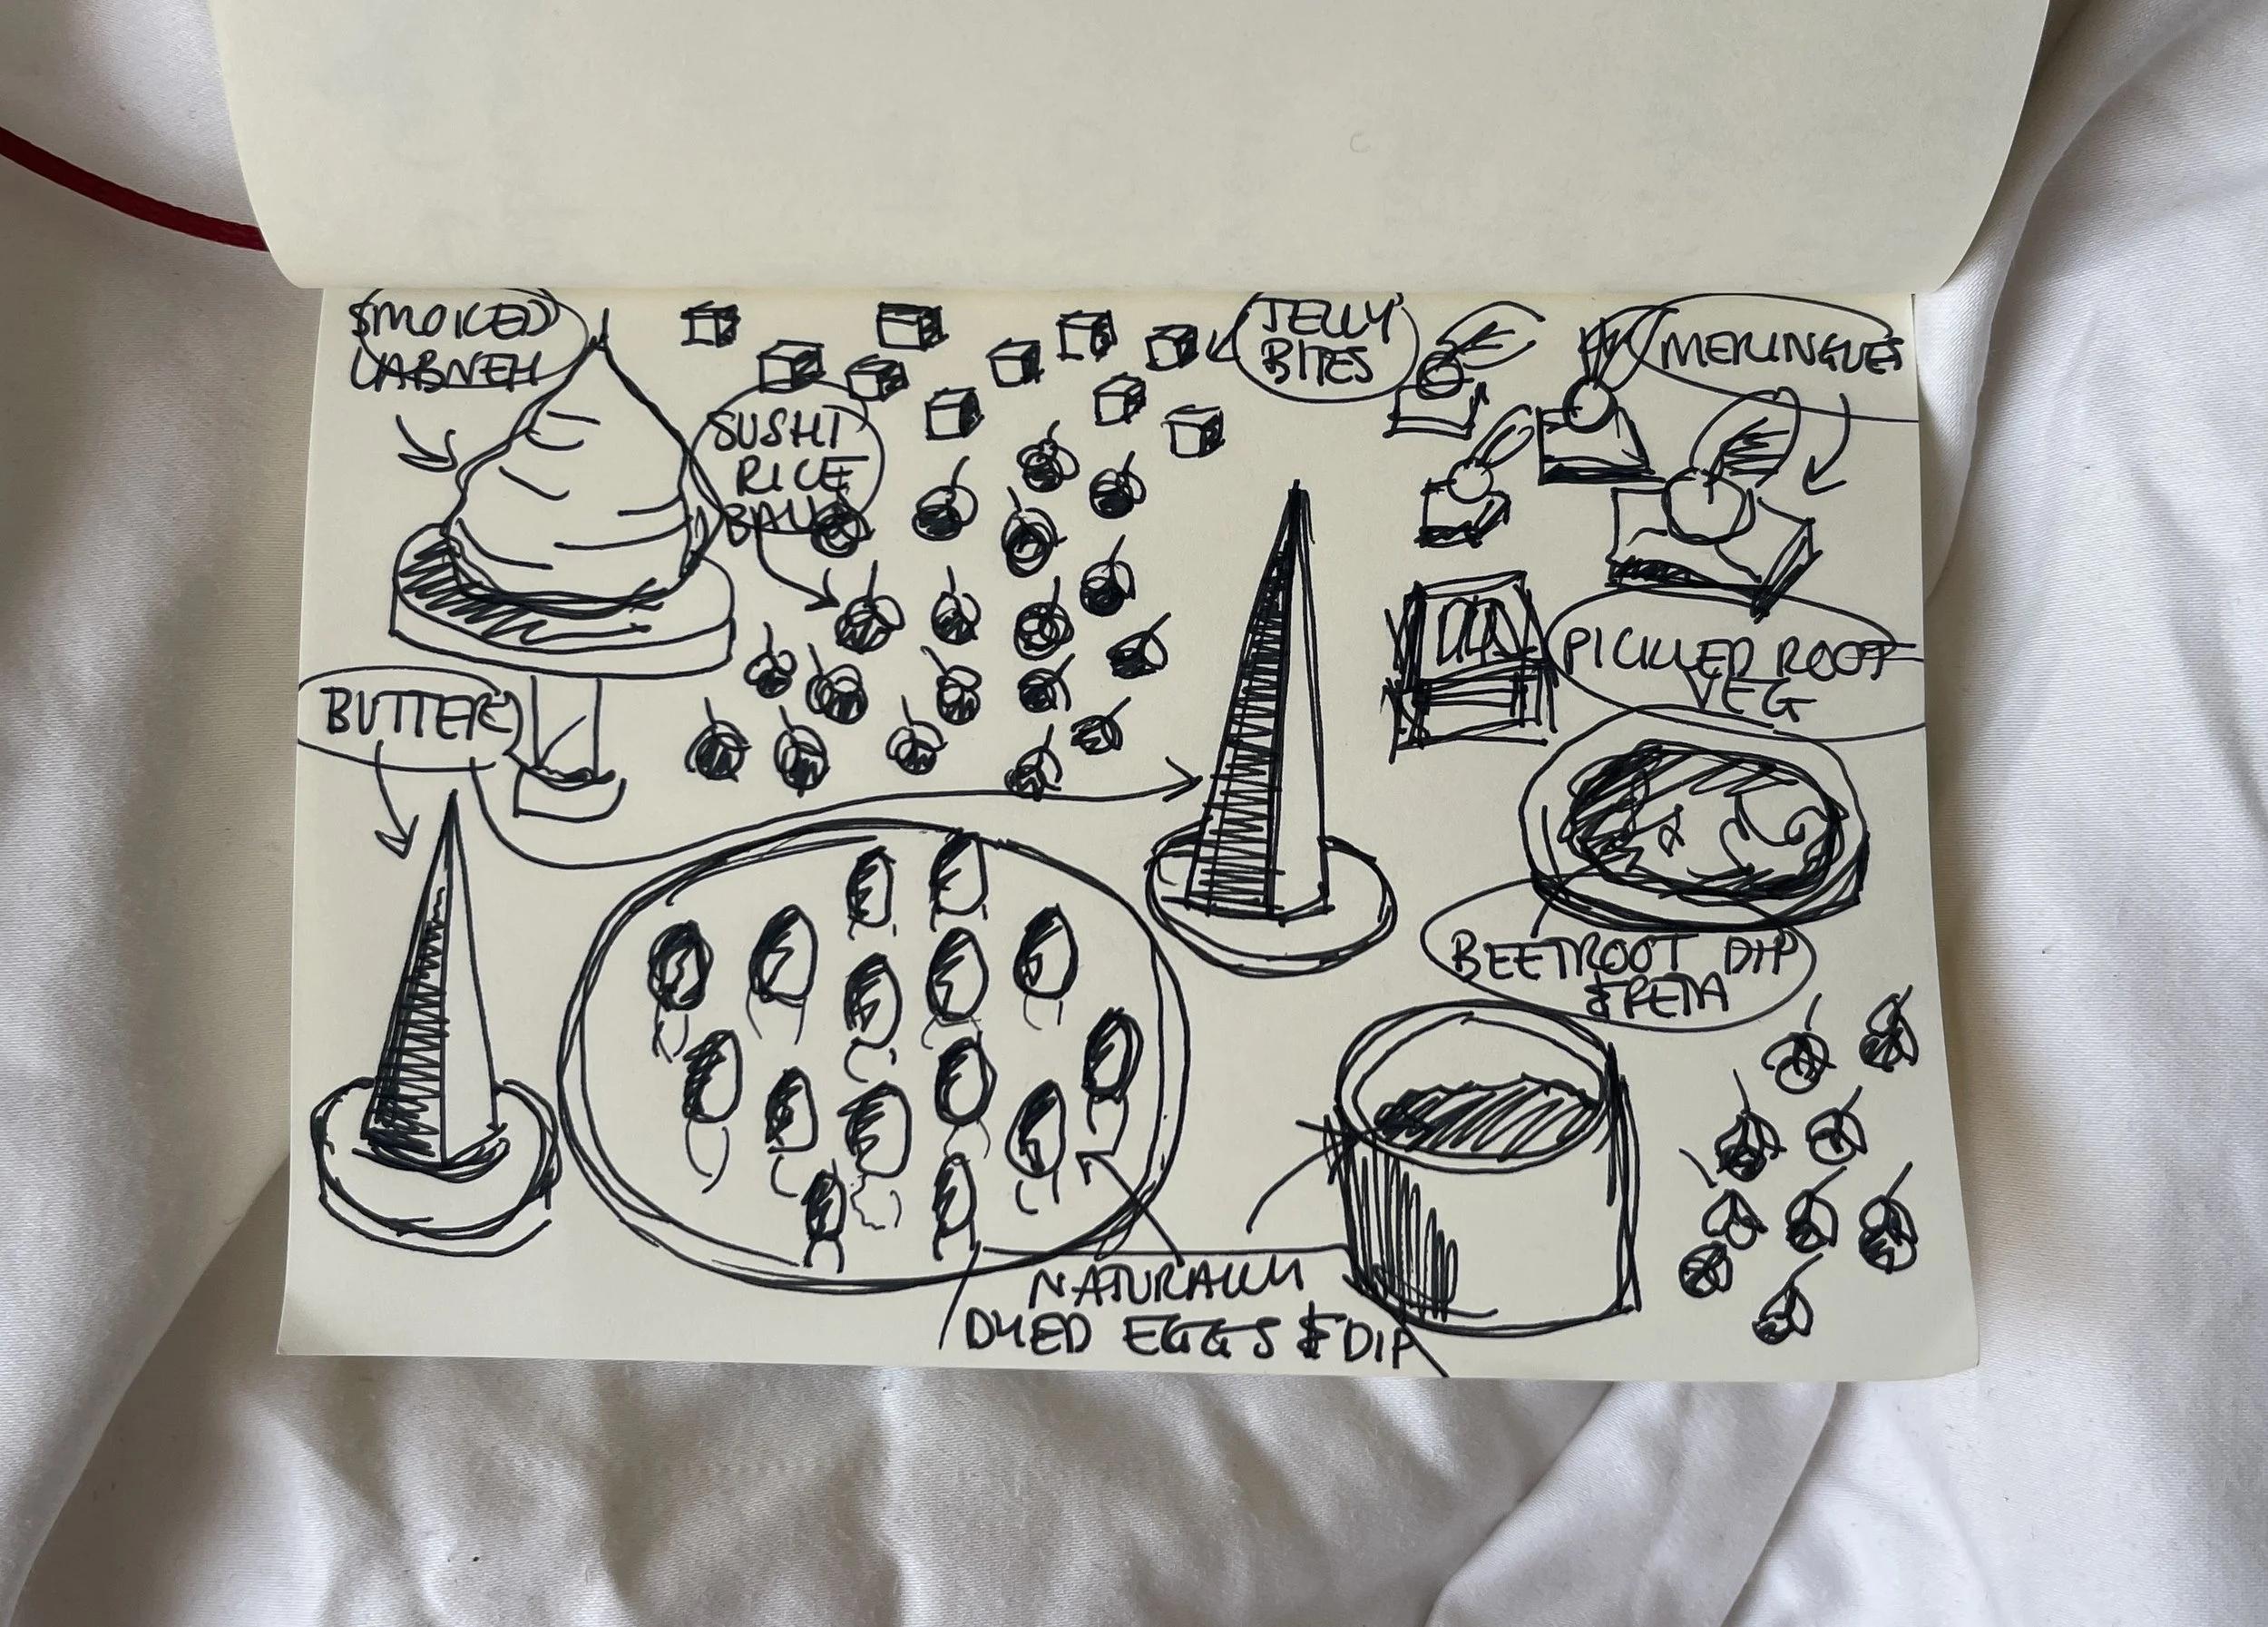 SMOKED
LABNEH
JELLY
BITES
MERINGUES
SUSHI
RICE
BALLS
PICKLED ROOT
VEG
BUTTER
BEETROOT DIP
& FETA
NATURALLY
DYED EGGS & DIP